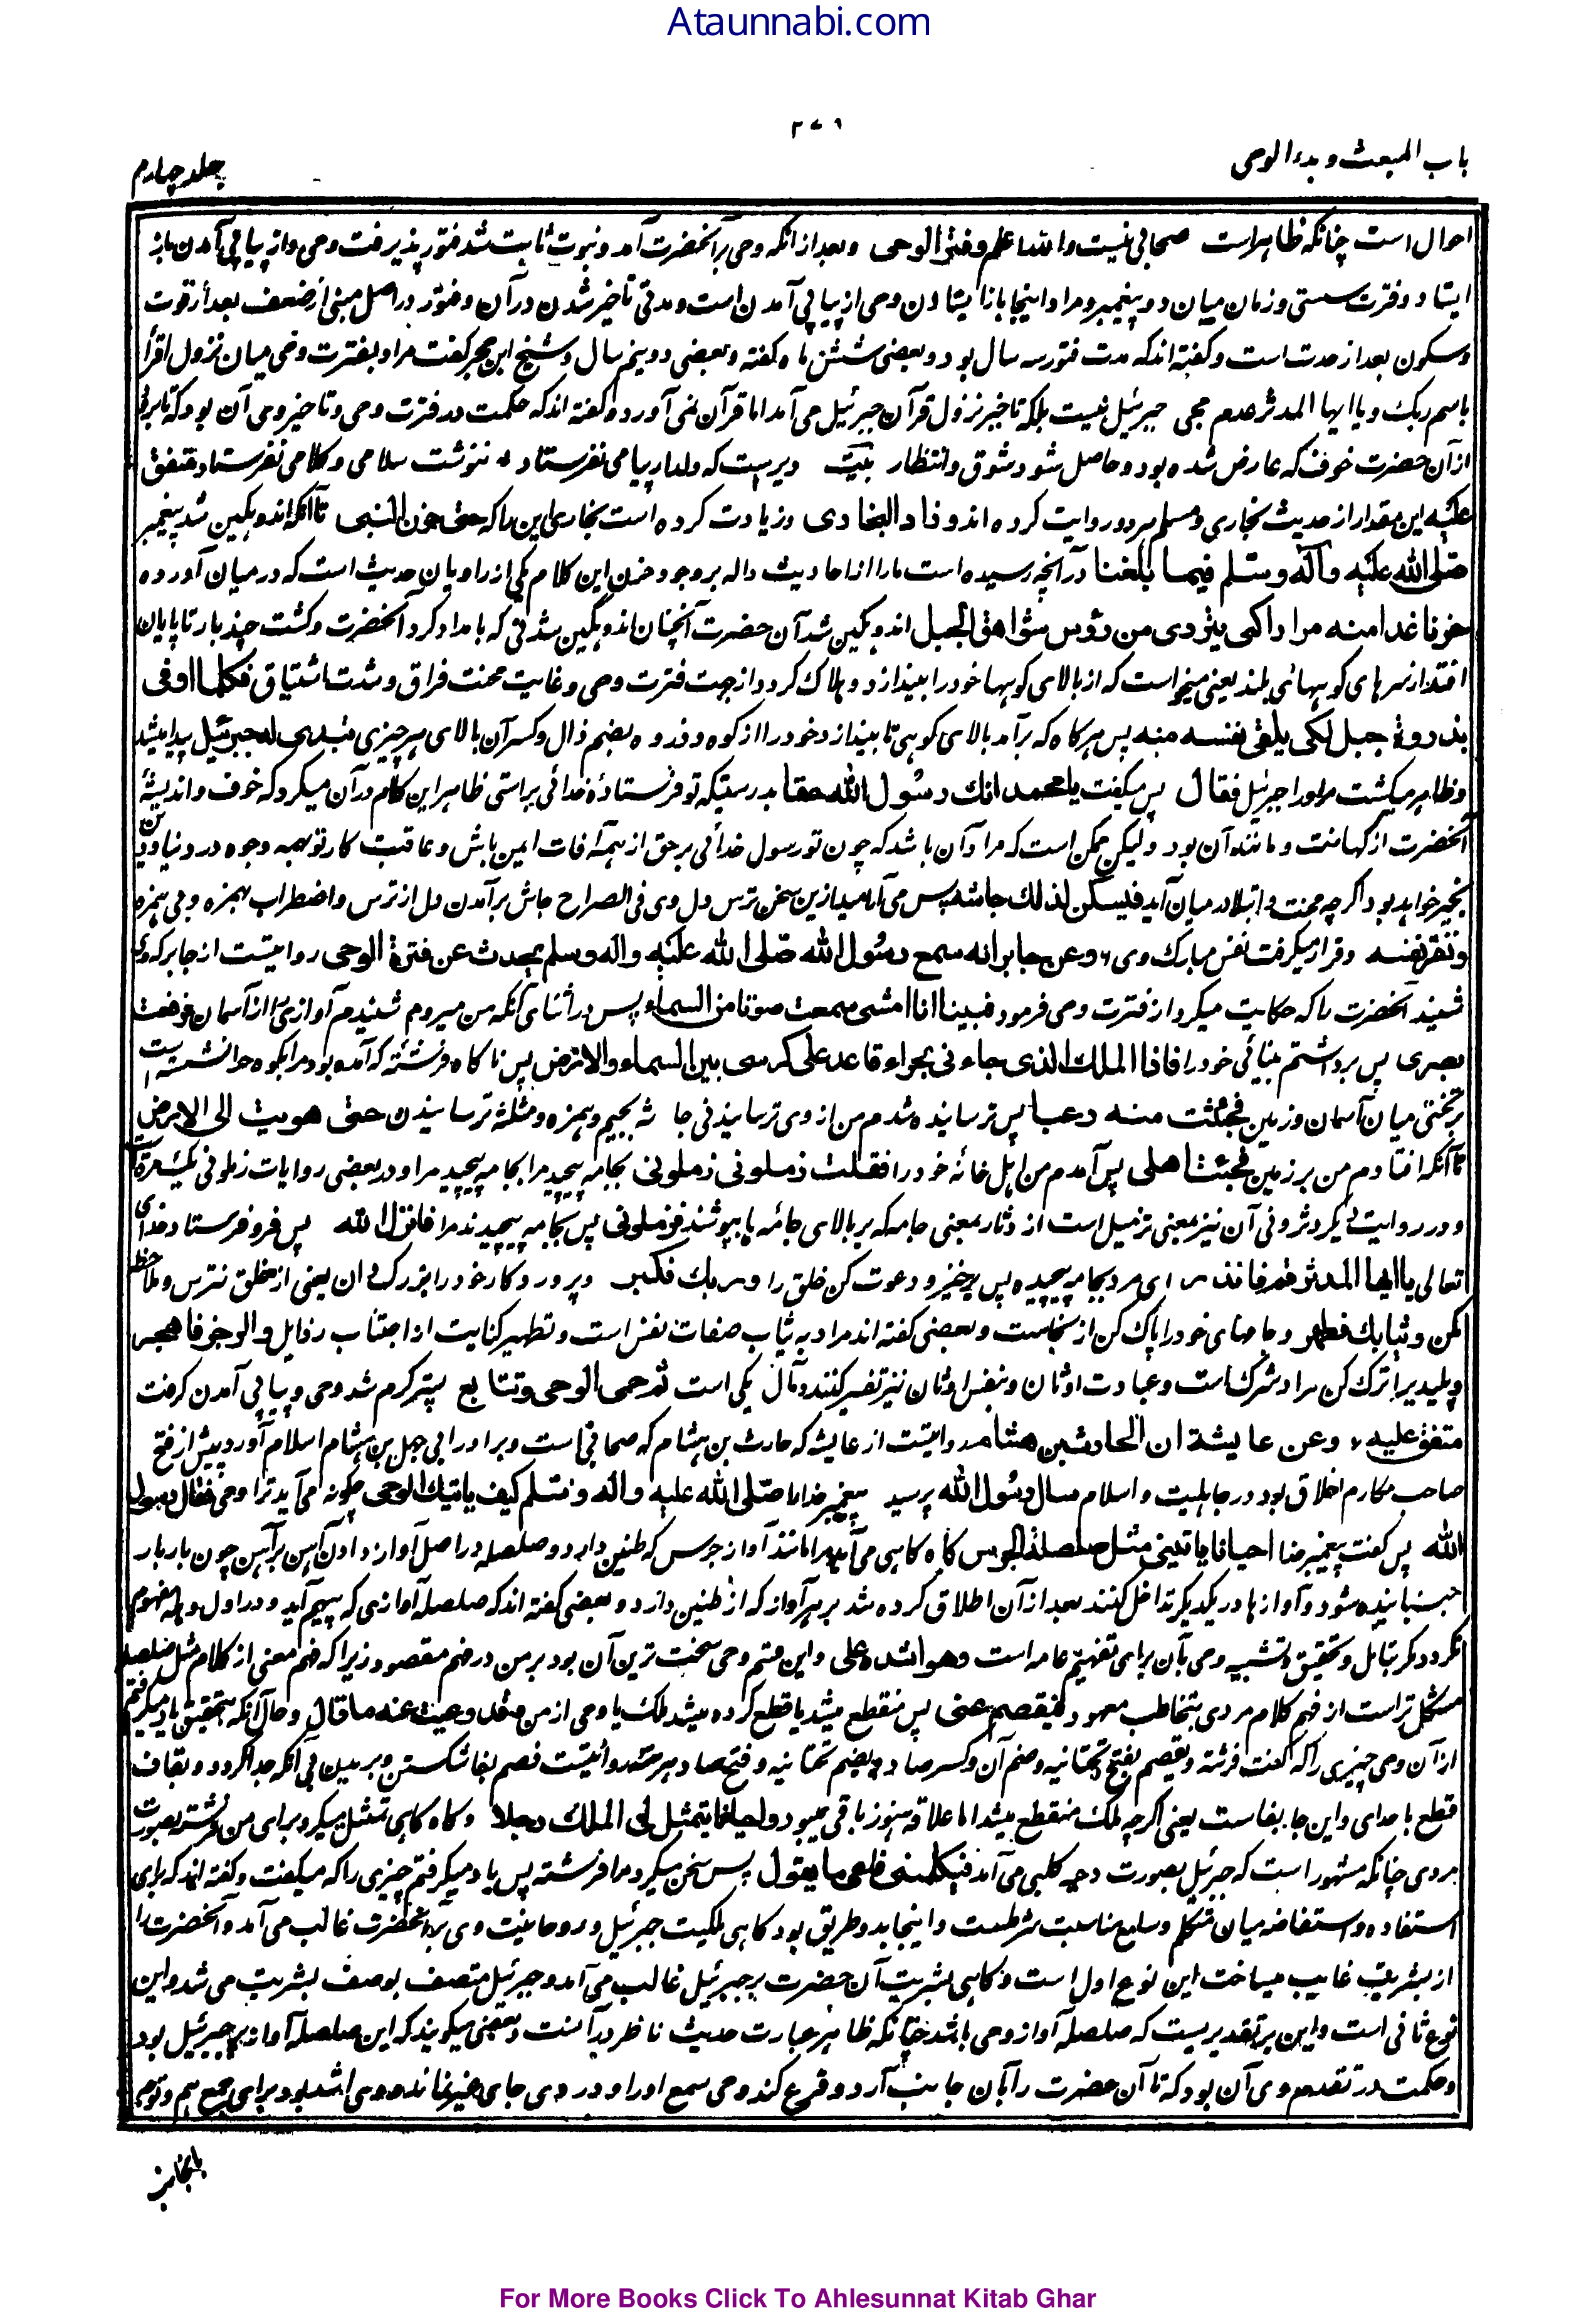 Ataunnabi.com
۳۷۱
باب المبعث و بدء الوحی
جلد چهارم
احوال است چنانکه ظاهر است صحابی نیست والله اعلم و فتر الوحی و بعد از انکه وحی بر آنحضرت آمد و نبوت ثابت شد فتور پذیرفت وحی و از پیاپی آمدن باز
ایستاد و فترت سستی و زمان میان دو پیغمبر و مراد اینجا باز ایستادن وحی از پیاپی آمدن است و مدتی تاخیر شدن در آن و فتور در اصل مبنی از ضعف بعد از قوت
و سکون بعد از حدت است و گفته اند که مدت فتور سه سال بود و بعضی شش ماه گفته و بعضی دو نیم سال و شیخ ابن حجر گفت مراد بفترت وحی میان نزول اقرأ
باسم ربک و یا ایها المدثر عدم مجی جبرئیل نیست بلکه تاخیر نزول قرآن جبرئیل می آمد اما قرآن نمی آورد و گفته اند که حکمت در فترت وحی و تاخیر وی آن بود که تا برود
از آن حضرت خوف که عارض شده بود و حاصل شود شوق و انتظار بیت دیرست که دلدار پیامی نفرستاد ننوشت سلامی و کلامی نفرستاد متفق
علیه این مقدار از حدیث بخاری و مسلم هر دو روایت کرده اند و زاد البخاری و زیادت کرده است بخاری این را که حتی حزن النبی تا آنکه اندوهگین شد پیغمبر
صلی الله علیه و آله و سلم فیما بلغنا در آنچه رسیده است ما را از احادیث داله بر وجود حزن این کلام یکی از راویان حدیث است که در میان آورده
حزنا غدا منه مرارا کی یتردی من رؤس شواهق الجبل اندوهگین شد آن حضرت آنچنان اندوهگین شدنی که بامداد کرد آنحضرت و گشت چند بار تا پایان
افتد از سرهای کوههای بلند یعنی میخواست که از بالای کوهها خود را بیندازد و هلاک گردد از جهت فترت وحی و غایت محنت فراق و شدت اشتیاق فکلما اوفی
بذروة جبل لکی یلقی نفسه منه پس هرگاه که برآمد بالای کوهی تا بیندازد خود را از کوه و ذروه بضم ذال و کسر آن بالای هر چیزی تبدی له جبرئیل پیدا میشد
و ظاهر میگشت مر او را جبرئیل فقال پس میگفت یا محمد انک رسول الله حقا بدرستیکه تو فرستادهٔ خدائی براستی ظاهر این کلام در آن میکرد که خوف و اندیشهٔ
آنحضرت از کهانت و مانند آن بود ولیکن ممکن است که مراد آن باشد که چون تو رسول خدائی برحق از همه آفات ایمن باش و عاقبت کار تو بهمه وجوه در دنیا و دین
بخیر خواهد بود اگرچه محنت و ابتلا در میان آید فیسکن لذلک جاشه پس می آرامید ازین سخن ترس دل وی فی الصراح جاش برآمدن دل از ترس و اضطراب بهمزه و بی همزه
و تقر نفسه و قرار میگرفت نفس مبارک وی و عن جابر انه سمع رسول الله صلی الله علیه و اله و سلم یحدث عن فترة الوحی روایتست از جابر که وی
شنید آنحضرت را که حکایت میکرد از فترت وحی فرمود فبینا انا امشی سمعت صوتا من السماء پس در اثنای آنکه من میروم شنیدم آوازی را از آسمان فرفعت
بصری پس برداشتم بینائی خود را فاذا الملک الذی جاءنی بحراء قاعد علی کرسی بین السماء و الارض پس ناگاه فرشته که آمده بود مرا بکوه حرا نشسته است
بر تختی میان آسمان و زمین فجئثت منه رعبا پس ترسانیده شدم من از وی ترسانیدنی جأث بجیم و همزه و مثلثه ترسانیدن حتی هویت الی الارض
تا آنکه افتادم من بر زمین فجئت اهلی پس آمدم من اهل خانه خود را فقلت زملونی زملونی بجامه بپیچید مرا بجامه بپیچید مرا و در بعضی روایات زملونی یک مرتبه است
و در روایت دیگر دثرونی آن نیز بمعنی تزمیل است از دثار بمعنی جامه که بر بالای جامه ها بپوشند فزملونی پس بجامه پیچیدند مرا فانزل الله پس فرو فرستاد خدای
تعالی یا ایها المدثر قم فانذر ای مرد بجامه پیچیده پس برخیز و دعوت کن خلق را و ربک فکبر و پروردگار خود را بزرگ دان یعنی از خلق نترس و ملاحظه
مکن و ثیابک فطهر و جامهای خود را پاک کن از نجاست و بعضی گفته اند مراد به ثیاب صفات نفس است و تطهیر کنایت از اجتناب رذایل و الرجز فاهجر
و پلیدی را ترک کن مراد شرک است و عبادت اوثان و بنفس اوثان نیز تفسیر کنند و مآل یکی است ثم حمی الوحی و تتابع پستر گرم شد وحی و پیاپی آمدن گرفت
متفق علیه و عن عایشة ان الحارث بن هشام روایتست از عایشه که حارث بن هشام که صحابی است و برادر ابی جهل بن هشام اسلام آورد پیش از فتح
صاحب مکارم اخلاق بود در جاهلیت و اسلام سال رسول الله پرسید پیغمبر خدا را صلی الله علیه و اله و سلم کیف یاتیک الوحی چگونه می آید ترا وحی فقال رسول
الله پس گفت پیغمبر خدا احیانا یاتینی مثل صلصلة الجرس گاه گاهی می آید مرا مانند آواز جرس که طنین دارد و صلصله در اصل آواز دادن آهن بر آهن چون بار بار
جنبانیده شود و آوازها در یکدیگر تداخل کنند بعد از آن اطلاق کرده شد بر هر آواز که از طنین دارد و بعضی گفته اند که صلصله آوازی که پیهم آید و در اول وهله مفهوم
نگردد مگر بتامل و تحقیق و تشبیه وحی بآن برای تفهیم عامه است و هو اشده علی و این قسم وحی سخت ترین آن بود بر من در فهم مقصود زیرا که فهم معنی از کلام مثل صلصله
مشکل تر است از فهم کلام مردی بتخاطب معهود فیفصم عنی پس منقطع میشد یا قطع کرده میشد ملک یا وحی از من و قد وعیت عنه ما قال و حال آنکه بتحقیق یاد میگرفتم
از آن وحی چیزی را که گفت فرشته و یفصم بفتح تحتانیه و ضم آن و کسر صاد و بضم تحتانیه و فتح صاد هر سه روایتست فصم بفا شکستن و بریدن بی آنکه جدا گردد و بقاف
قطع با جدای و این جا بفاست یعنی اگرچه ملک منقطع میشد اما علاقه هنوز باقی میبود و احیانا یتمثل لی الملک رجلا و گاه گاهی تمثل میکرد برای من فرشته بصورت
مردی چنانکه مشهور است که جبرئیل بصورت دحیه کلبی می آمد فیکلمنی فاعی ما یقول پس سخن میکرد مرا فرشته پس یاد میگرفتم چیزی را که میگفت و گفته اند که برای
استفاده و استفاضه میان متکلم و سامع مناسبت شرطست و اینجا بدو طریق بود گاهی ملکیت جبرئیل و روحانیت وی بر آنحضرت غالب می آمد و آنحضرت را
از بشریت غایب میساخت این نوع اول است و گاهی بشریت آن حضرت بر جبرئیل غالب می آمد و جبرئیل متصف بوصف بشریت می شد و این
نوع ثانی است و این بر تقدیریست که صلصله آواز وحی باشد چنانکه ظاهر عبارت حدیث ناظر در آنست و بعضی میگویند که این صلصله آواز پر جبرئیل بود
و حکمت در تقدم وی آن بود که تا آن حضرت را بآن جانب آرد و قرع کند وحی سمع او را و در وی جای غیر نماند و وی اشد بود برای جمع هم و توجه
بانجانب
For More Books Click To Ahlesunnat Kitab Ghar